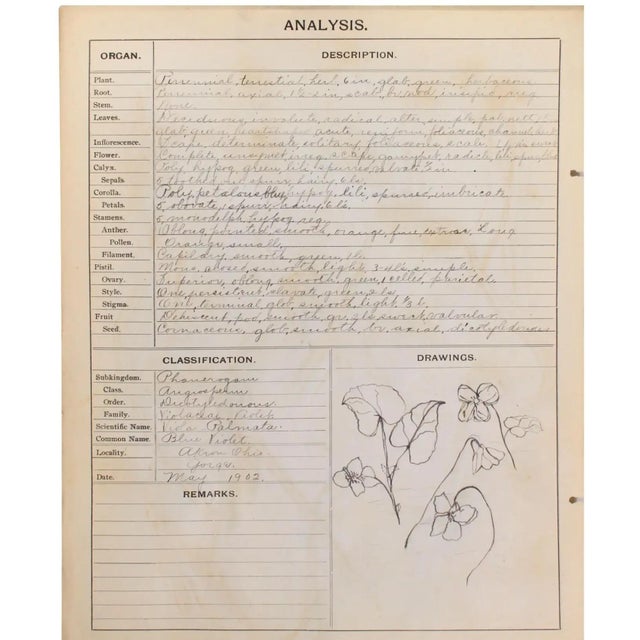 ANALYSIS.
ORGAN. DESCRIPTION.
Plant. Perennial, terrestial, herb, 6 in, glab, green, herbaceous
Root. Perennial, axial, 1½-3 in, scat, br, mod, reg
Stem. None.
Leaves. Deciduous, involute, radical, alter, simple, pal, nett,
glab, green, heartshaped, acute, reniform, foliaceous, channel,
Inflorescence. Scape, determinate, solitary, foliaceous, scale,
Flower. Complete, unsymet, irreg, scape, gamopet, radicle, lili, spurred
Calyx. Poly, hypog, green, lili, spurred, valvate
Sepals. 5, spurr, hairy, 6 li.
Corolla. Poly, petalous, blue, hypog, lili, spurred, imbricate.
Petals. 5, obovate, 1 spurr, hairy, 6 ls.
Stamens. 5, monodelph, hypog, reg.
Anther. Oblong, pointed, smooth, orange, free, extror, 2 long
Pollen. Orange, small.
Filament. Capillary, smooth, green, 1 l.
Pistil. Mono, smooth, light, 3-4 ls, simple.
Ovary. Superior, oblong, smooth, green, 1 celled, parietal
Style. One, persistent, clavate, green, 2 ls
Stigma. One, terminal, glob, smooth, light
Fruit Dehiscent, pod, smooth, gr, valvular.
Seed. Cornaceous, glob, smooth, br, axial, dicotyledonous
CLASSIFICATION. DRAWINGS.
Subkingdom. Phanerogam
Class. Angiosperm
Order. Dicotyledonous.
Family. Violaceae, Violet
Scientific Name. Viola Palmata.
Common Name. Blue Violet.
Locality. Akron Ohio
Gorge.
Date. May 1902.
REMARKS.